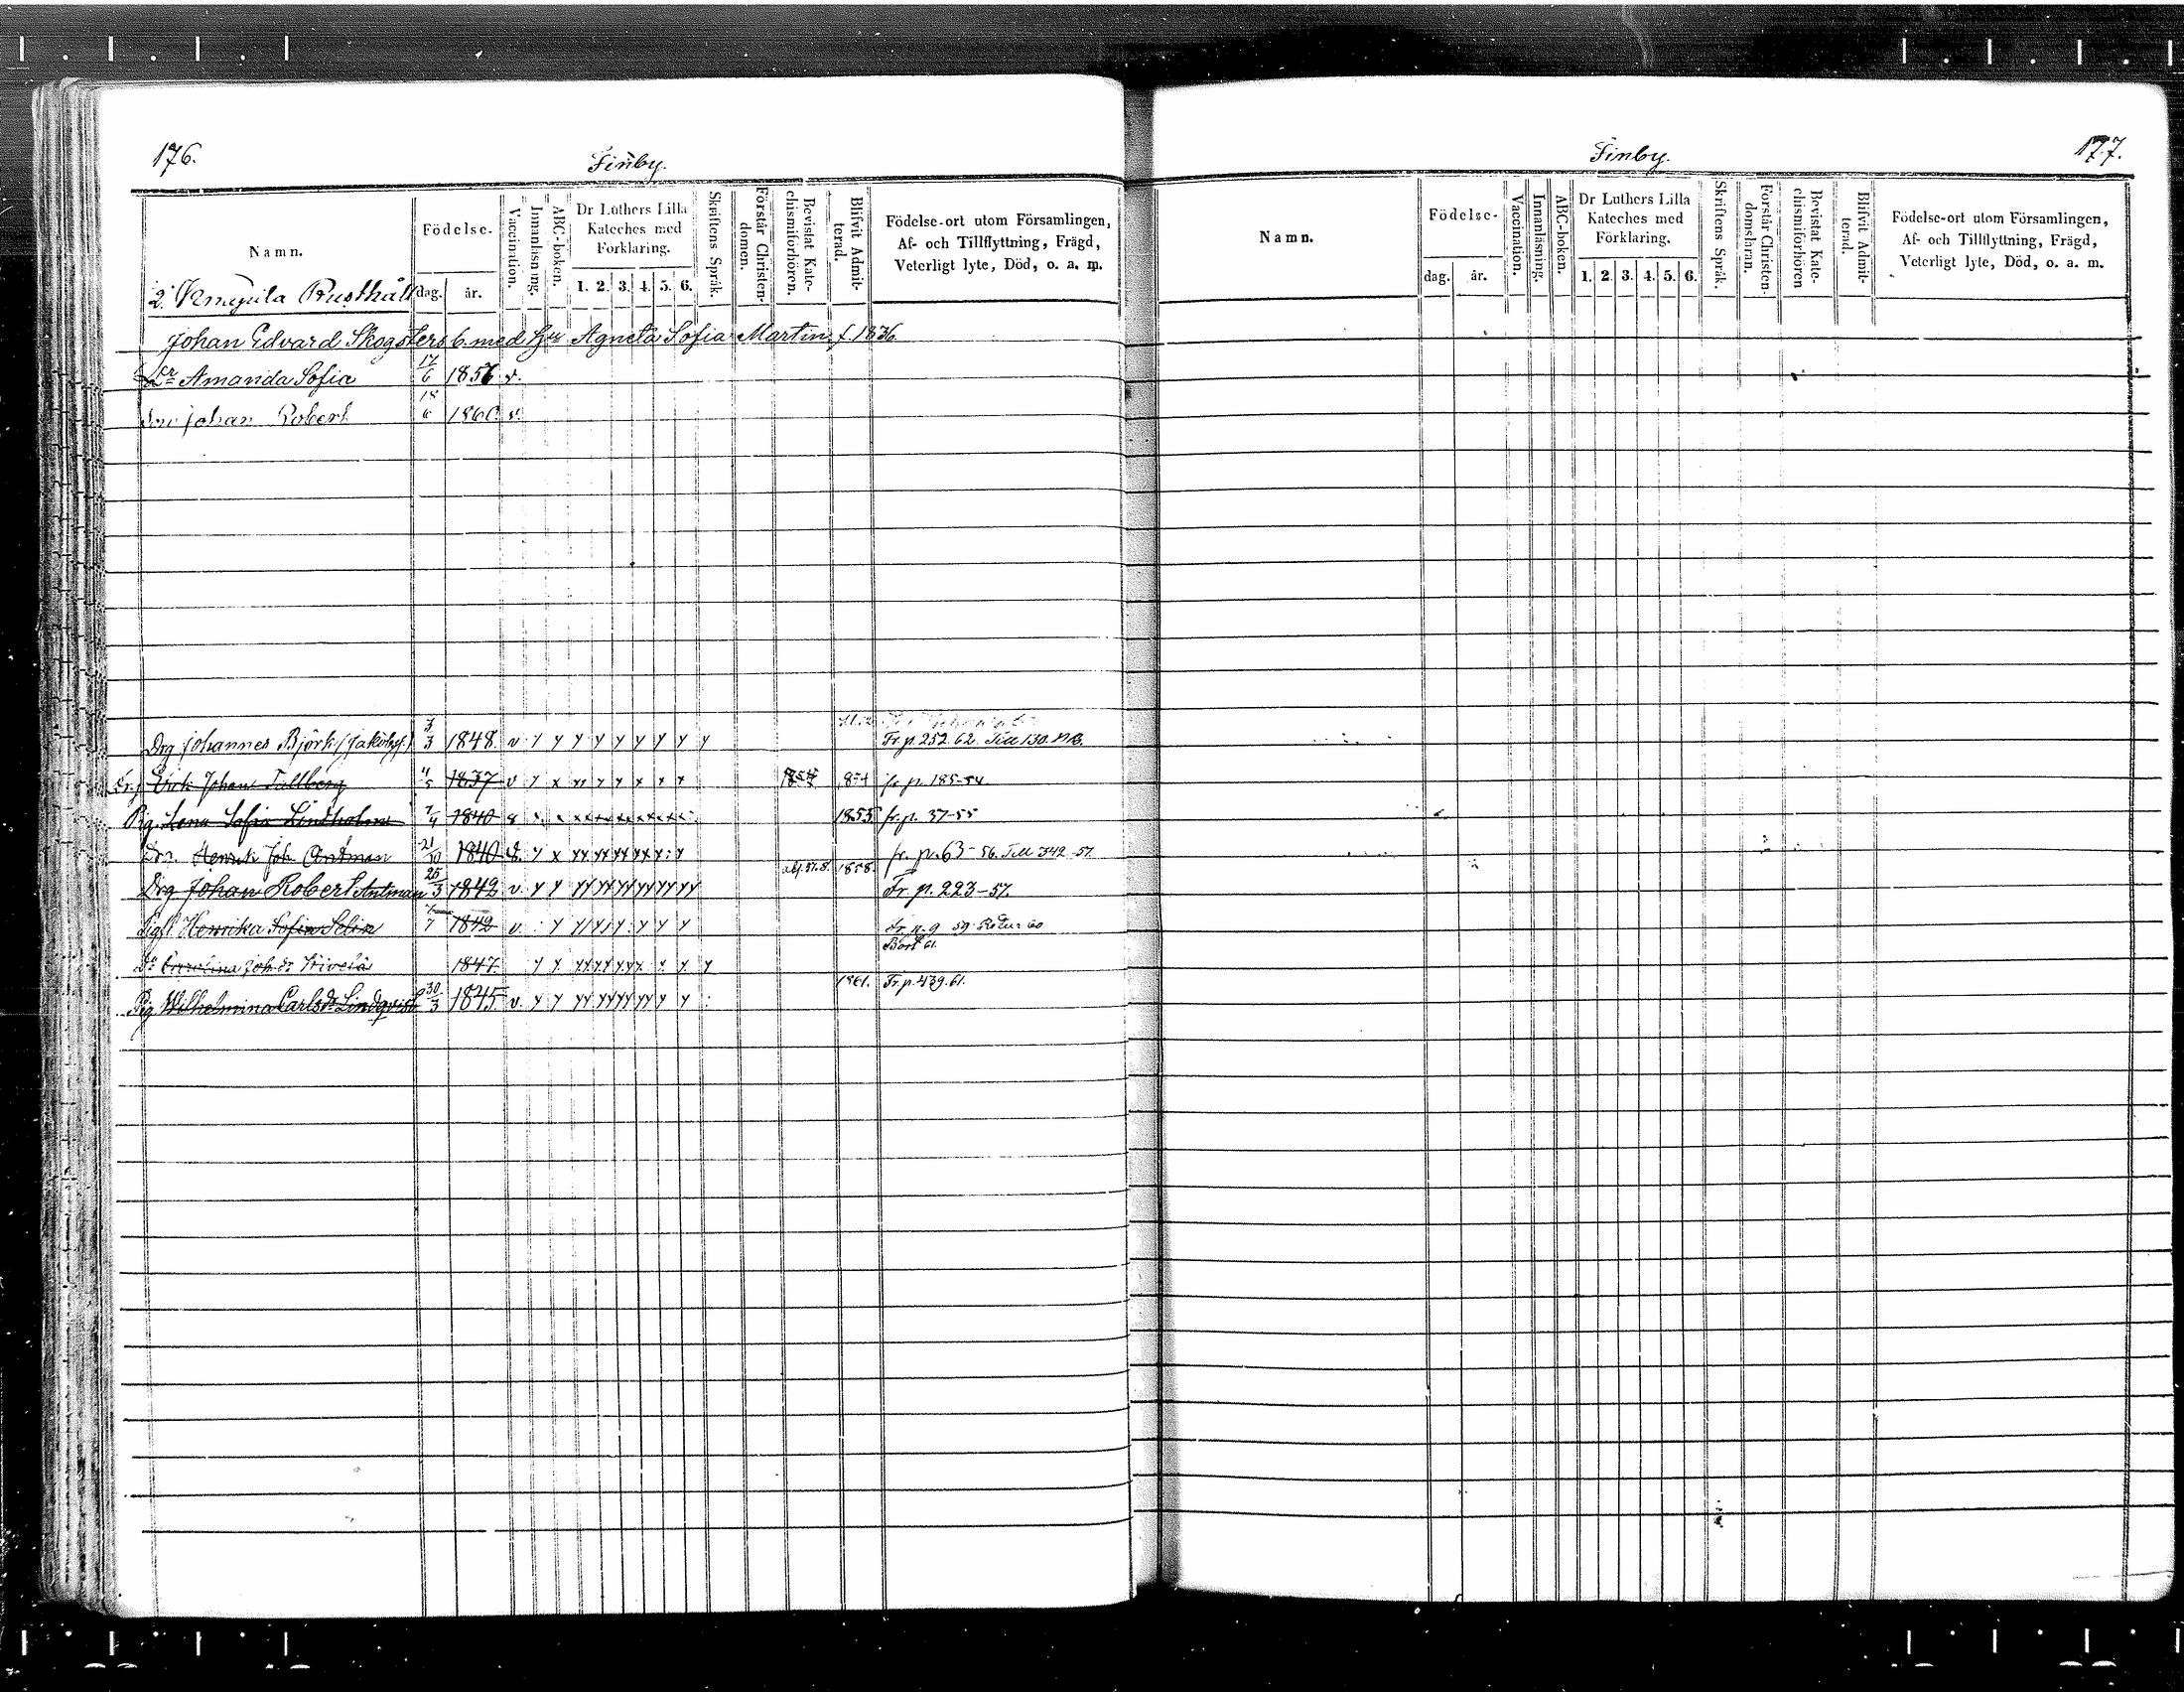 176.
Finby.
Namn.
Födelse.
dag.
år.
Vaccination.
Innanläsning.
ABC-boken.
Dr Luthers Lilla
Kateches med
Förklaring.
1. 2. 3. 4. 5. 6.
Skriftens Språk.
Förstår Christen-
domen.
Bevistat Kate-
chismiförhören.
Blifvit Admit-
terad.
Födelse-ort utom Församlingen,
Af- och Tillflyttning, Frägd,
Veterligt lyte, Död, o. a. m.
2. Rusthåll
Johan Edvard Skogsters b. med Agneta Sofia Martin f. 1836.
Amanda Sofia 17/6 1856 v.
Johan Robert 18/6 1860 v.
Drg Johannes Björk (Jakobsf.) 3/3 1848. v y y y y y y y y y Fr. p. 252. 62. Till 130.
Johan Tallberg 1837 v 1854 fr. p. 185-54
Lena Sofia Lindholm 7/9 1840 1855 fr. p. 37-55
Henrik Joh Antman 21/10 1840 fr. p. 63-56. Till 342-57.
Drg Johan Robert Antman 25/3 1842 v. 1858. Fr. p. 223-57.
Henrika Sofia Selin 1842 v. Fr. p. 9 59 Retur 60
Bort 61.
Carolina Joh. dr 1847.
Pig. Wilhelmina Carlsdr Lindqvist 30/3 1845 v. 1861. Fr. p. 439. 61.
Finby.
177.
Namn.
Födelse-
dag.
år.
Vaccination.
Innanläsning.
ABC-boken.
Dr Luthers Lilla
Kateches med
Förklaring.
1. 2. 3. 4. 5. 6.
Skriftens Språk.
Förstår Christen-
domsläran.
Bevistat Kate-
chismiförhören
Blifvit Admit-
terad.
Födelse-ort utom Församlingen,
Af- och Tillflyttning, Frägd,
Veterligt lyte, Död, o. a. m.